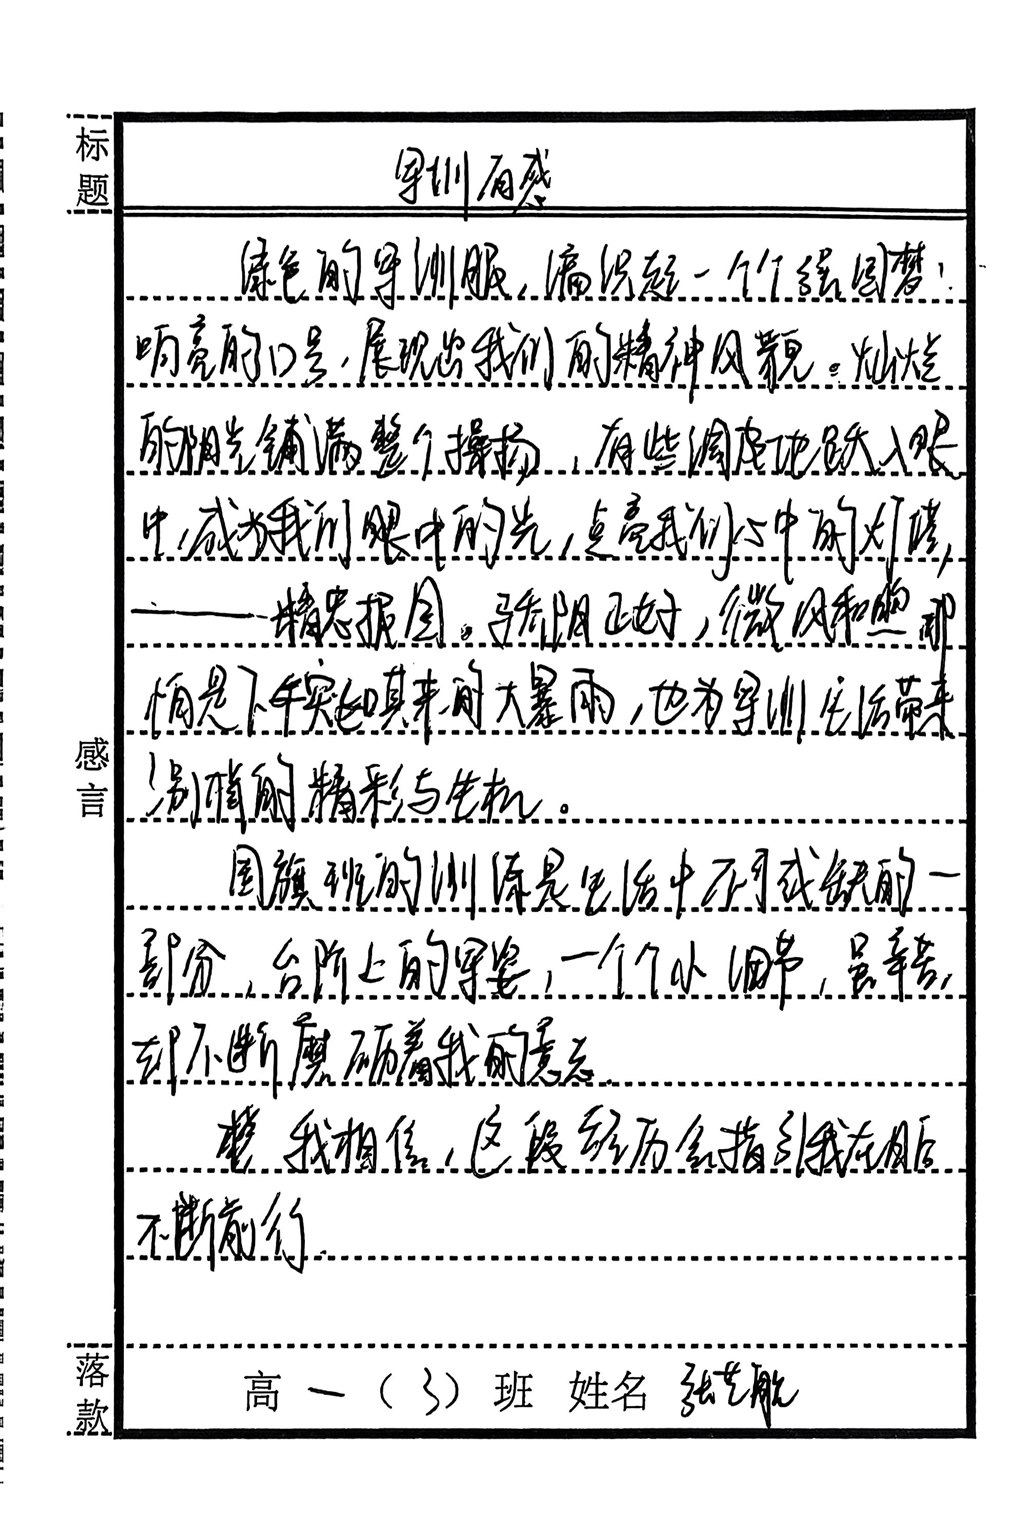 标题
军训有感
绿色的军训服，编织起一个个强国梦！
响亮的口号，展现出我们的精神风貌。灿烂
的阳光铺满整个操场，有些调皮地跃入眼
中，成为我们眼中的光，点亮我们心中的灯塔，
——精忠报国。骄阳正好，微风和煦，哪
怕是下午突如其来的大暴雨，也为军训生活带来
别样的精彩与生机。
感言
国旗班的训练是生活中不可或缺的一
部分，台阶上的军姿，一个个小细节，虽辛苦，
却不断磨砺着我的意志。
我相信，这段经历会指引我在日后
不断前行.
落款
高一（3）班 姓名 张艺航